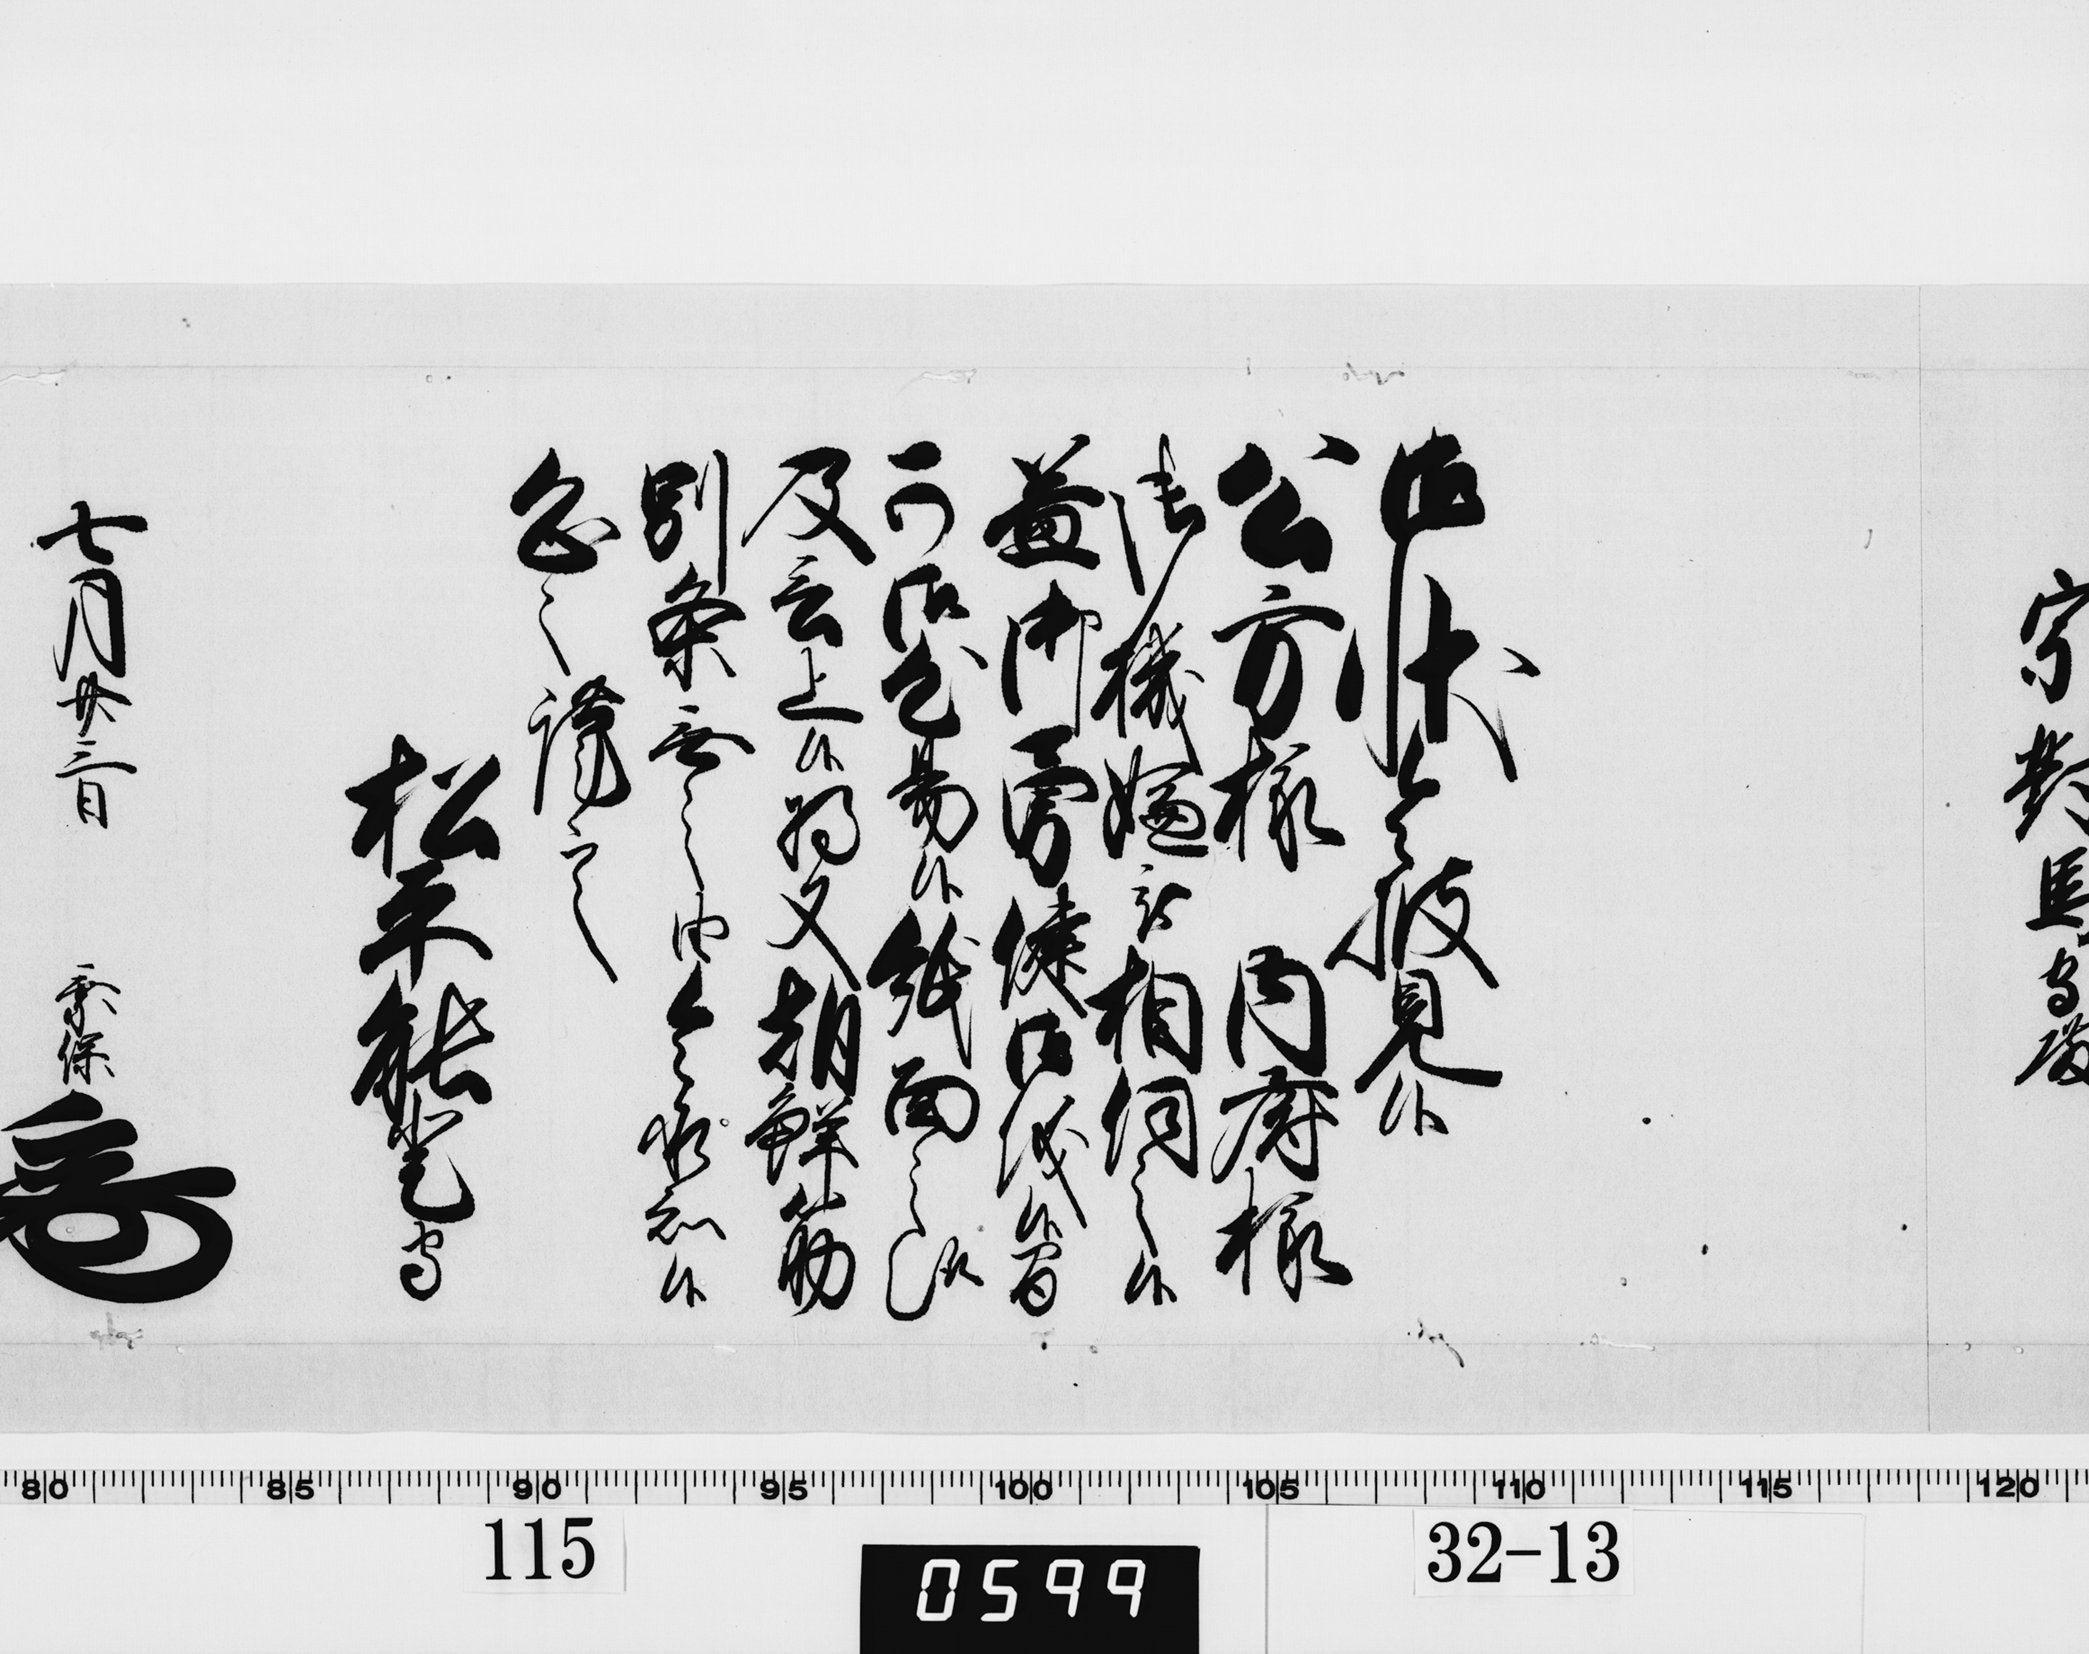 宗對馬守殿
御状令披見候
公方様　内府様
御機嫌被相伺之候
益御勇健御儀候間
可御心易候紙面之趣
及言上候将又朝鮮筋
別条無之由令承知候
恐々謹言
松平能登守
七月廿三日　乗保
80 85 90 95 100 105 110 115 120
115
0599
32-13